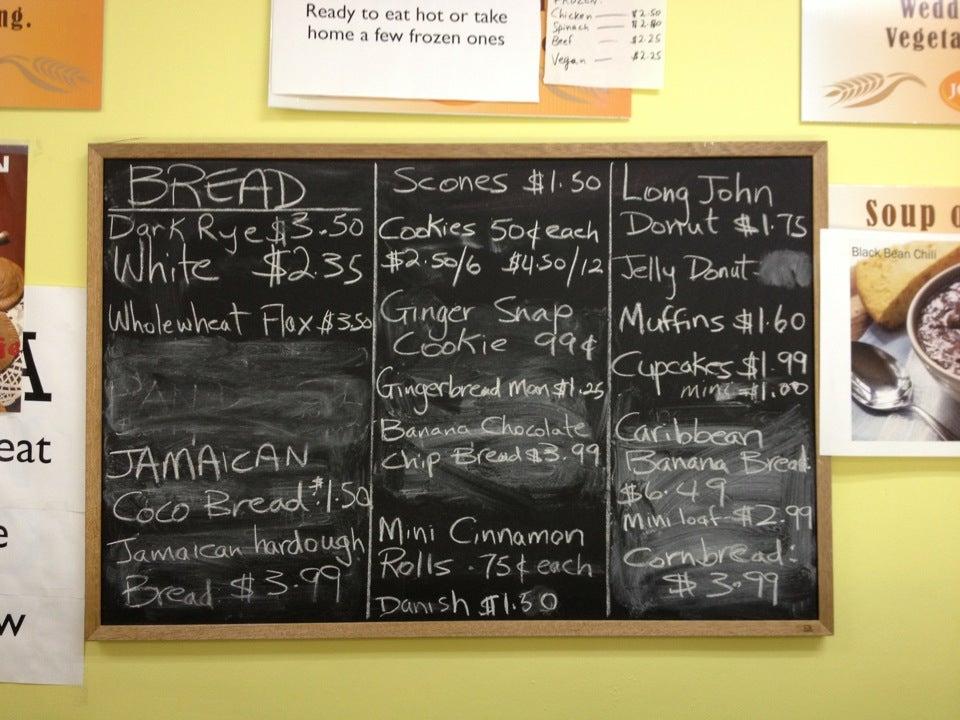 ng.
Ready to eat hot or take
home a few frozen ones
Chicken — $2.50
Spinach —
Beef $2.25
Vegan — $2.25
Wedd
Vegeta
BREAD
Dark Rye $3.50
White $2.35
Wholewheat Flax $3.50
JAMAICAN
Coco Bread: $1.50
Jamaican hardough
Bread $3.99
Scones $1.50
Cookies 50¢ each
$2.50/6 $4.50/12
Ginger Snap
Cookie 99¢
Gingerbread Man $1.25
Banana Chocolate
Chip Bread $3.99
Mini Cinnamon
Rolls .75¢ each
Danish $1.50
Long John
Donut $1.75
Jelly Donut
Muffins $1.60
Cupcakes $1.99
mini - $1.00
Caribbean
Banana Bread
$6.49
Mini loaf - $2.99
Cornbread:
$3.99
Soup o
Black Bean Chili
N
A
eat
e
w